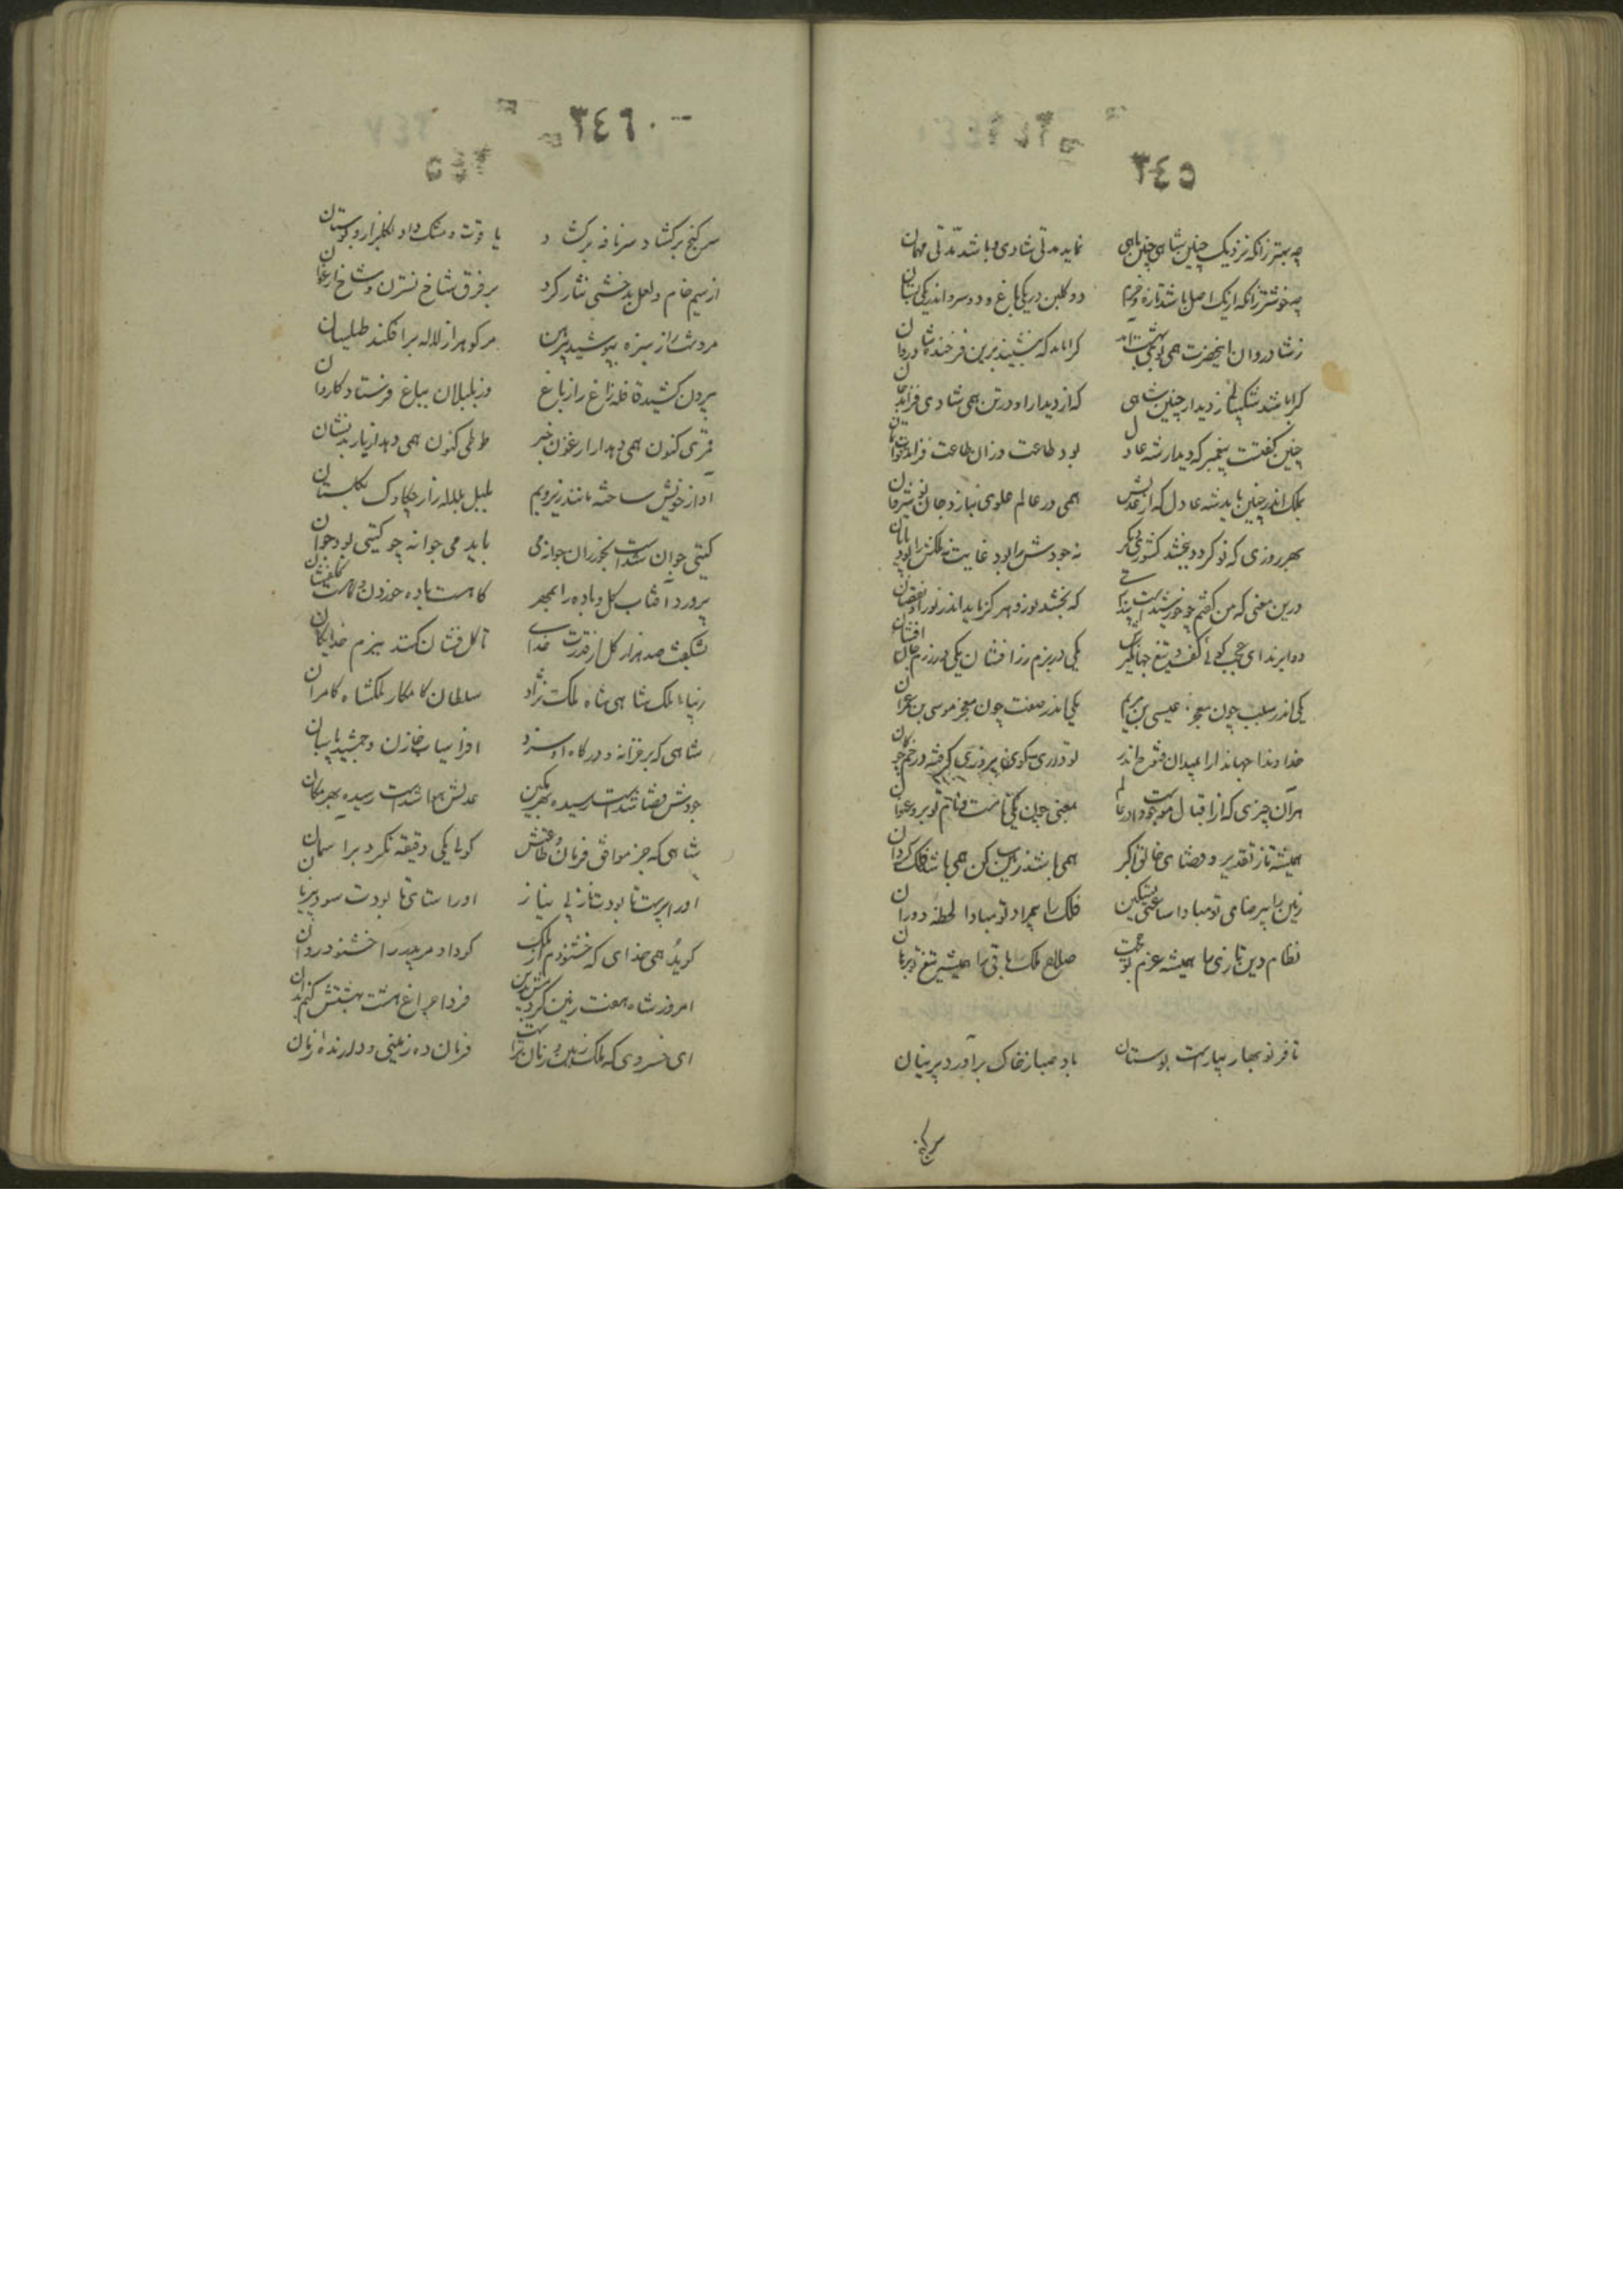 ٣٤٥
چه بهتر زانکه نزدیک چنین شاهی چنین ماهی نماید مدتی شادی و باشد مدتی مهمان
چه خوشتر زانکه از یک اصل باشد تازه و خرم دو گلبن در یکی باغ و دو سرو اندر یکی بستان
ز شادروان این حضرت همی بوی بهشت آید کرا باید که بنشیند برین فرخنده شادروان
کرا باشد شکیبائی ز دیدار چنین شاهی که از دیدار او در تن همی شادی فزاید جان
چنین گفتست پیغمبر که دیدار شه عادل بود طاعت وزان طاعت فزاید
بملک اندر چنین باید شه عادل که از عدلش همی در عالم علوی بنازد جان نوشیروان
بهر روزی که نو گردد ببخشد کشوری دیگر نه جودش را بود غایت نه ملکش را بود پایان
درین معنی که من گفتم چو خورشیدست پنداری که بخشد نور و هرگز ناید اندر نور او نقصان
دو ابرند ای عجب گوئی کف و تیغ جهانگیرش یکی در بزم زر افشان یکی در رزم جان افشان
یکی اندر سلب چون معجز عیسی بن مریم یکی اندر صفت چون معجز موسی بن عمران
خداوندا جهاندارا بمیدان فتوح اندر تو داری گوی پیروزی گرفته در خم چوگان
هر آن چیزی که از اقبال موجودست در عالم بمعنی چون یکی نامست و نام تو برو عنوان
همیشه تا ز تقدیر و قضای خالق اکبر همی باشد زمین ساکن همی باشد فلک گردان
زمین را بی رضای تو مبادا ساعتی تسکین فلک را بی مراد تو مبادا لحظهٔ دوران
نظام دین تازی را همیشه عزم تو حجت صلاح ملک باقی را همیشه تیغ تو برهان
تا فر نوبهار بیاراست بوستان باد صبا ز خاک برآورد پرنیان
سر گنج
٣٤٦
سر گنج برگشاد و سر نافه برگشاد یاقوت و مشک داد بگلزار و بوستان
از سیم خام و لعل بدخشی نثار کرد بر فرق شاخ نسترن و شاخ ارغوان
مر دشت را ز سبزه بپوشید پیرهن مر کوه را ز لاله برافکند طیلسان
بیرون کشید قافله زاغ را ز باغ وز بلبلان بباغ فرستاد کاروان
قمری کنون همی دهد از ارغنون خبر طوطی کنون همی دهد از باربد نشان
آواز خویش ساخته مانند زیر و بم بلبل بلاله زار و چکاوک بگلستان
گیتی جوان شدست بخور زان جوانه می باید می جوانه چو گیتی بود جوان
پرورد آفتاب گل و باده را بمهر کامست باده خوردن
بشکفت صد هزار گل از قدرت خدای تا گل فشان کنند ببزم خدایگان
زیباء ملک شاهی شاه ملک نژاد سلطان کامکار ملکشاه کامران
شاهی که بر خزانه و درگاه او سزد افراسیاب خازن و جمشید پاسبان
جودش قضا شدست رسیده بهر مکین عدلش هوا شدست رسیده بهر مکان
شاهی که جز موافق فرمان و طاعتش گوئی یکی دقیقه نگردد بر آسمان
او را پرست تا بودت ناز بی نیاز او را ستای تا بودت سود بی زیان
گوید همی خدای که خشنودم از ملک کو داد مر پدر را خشنود در روان
امروز شاه هفت زمین کردمش فردا چراغ هشت بهشتش کنم بدان
ای خسروی که ملک زمین و زمان تراست فرمان ده زمینی و دارنده زمان